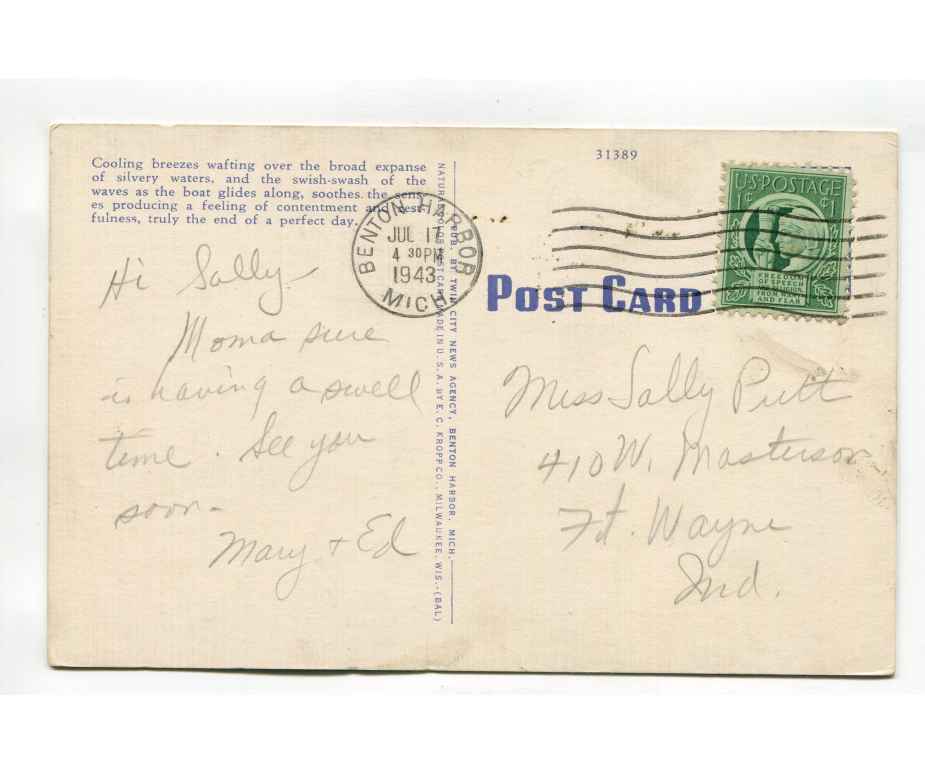 Cooling breezes wafting over the broad expanse
of silvery waters, and the swish-swash of the
waves as the boat glides along, soothes the sens-
es producing a feeling of contentment and rest-
fulness, truly the end of a perfect day.
Hi Sally
Moma sure
is having a swell
time. See you
soon-
Mary + Ed
NATURAL COLOR POST CARD MADE IN U.S.A. BY E. C. KROPP CO., MILWAUKEE, WIS.-(BAL)
PUB. BY TWIN CITY NEWS AGENCY, BENTON HARBOR, MICH.
BENTON HARBOR
JUL 17
4 30 PM
1943
MICH
31389
U.S. POSTAGE
1¢ ¢1
FREEDOM
OF SPEECH
AND RELIGION,
FROM WANT
AND FEAR
POST CARD
Miss Sally Putt
410 W. Masterson
Ft. Wayne
Ind.